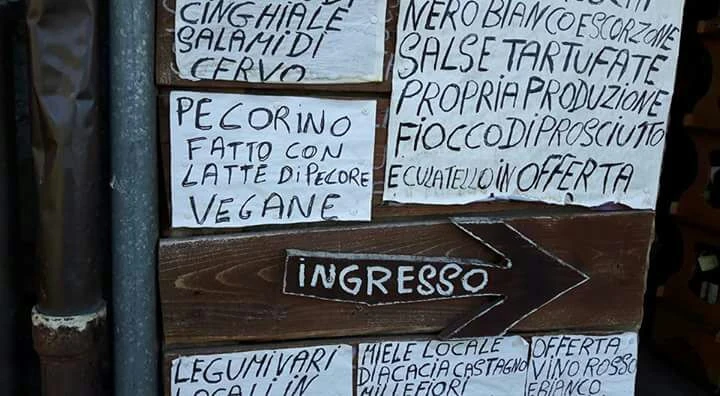 CINGHIALE
SALAMI DI
CERVO
NERO BIANCO E SCORZONE
SALSE TARTUFATE
PROPRIA PRODUZIONE
FIOCCO DI PROSCIUTTO
E CULATELLO IN OFFERTA
PECORINO
FATTO CON
LATTE DI PECORE
VEGANE
INGRESSO
LEGUMI VARI
LOCALI IN
MIELE LOCALE
DI ACACIA CASTAGNO
MILLEFIORI
OFFERTA
VINO ROSSO
E BIANCO